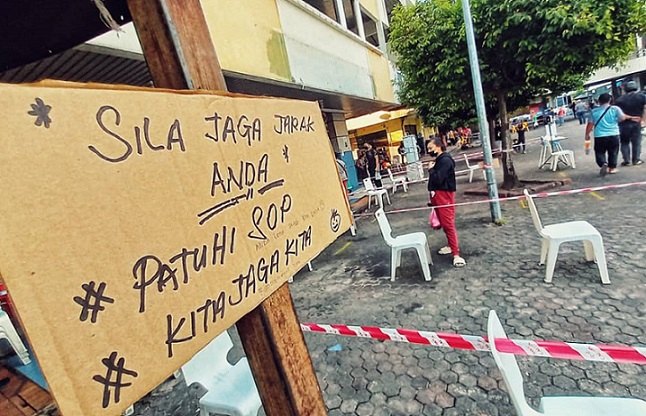 * SILA JAGA JARAK
ANDA *
# PATUHI SOP
# KITA JAGA KITA